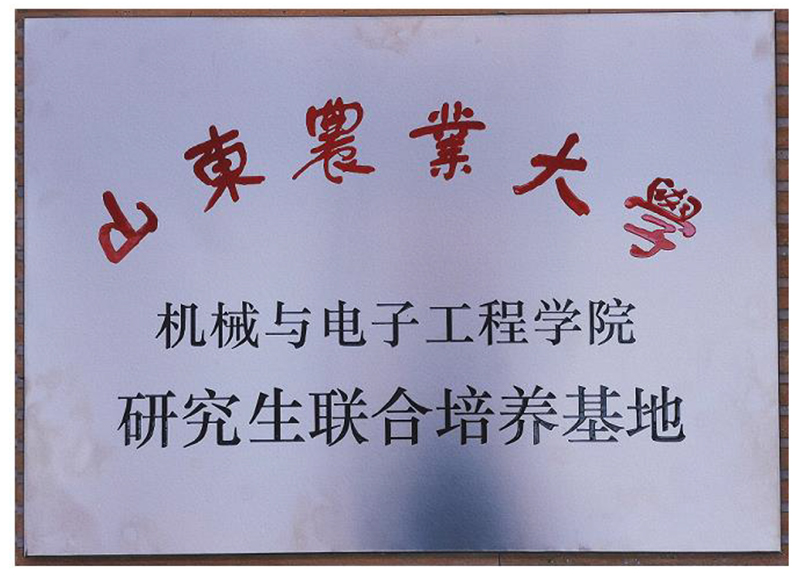 山東農業大學
机械与电子工程学院
研究生联合培养基地